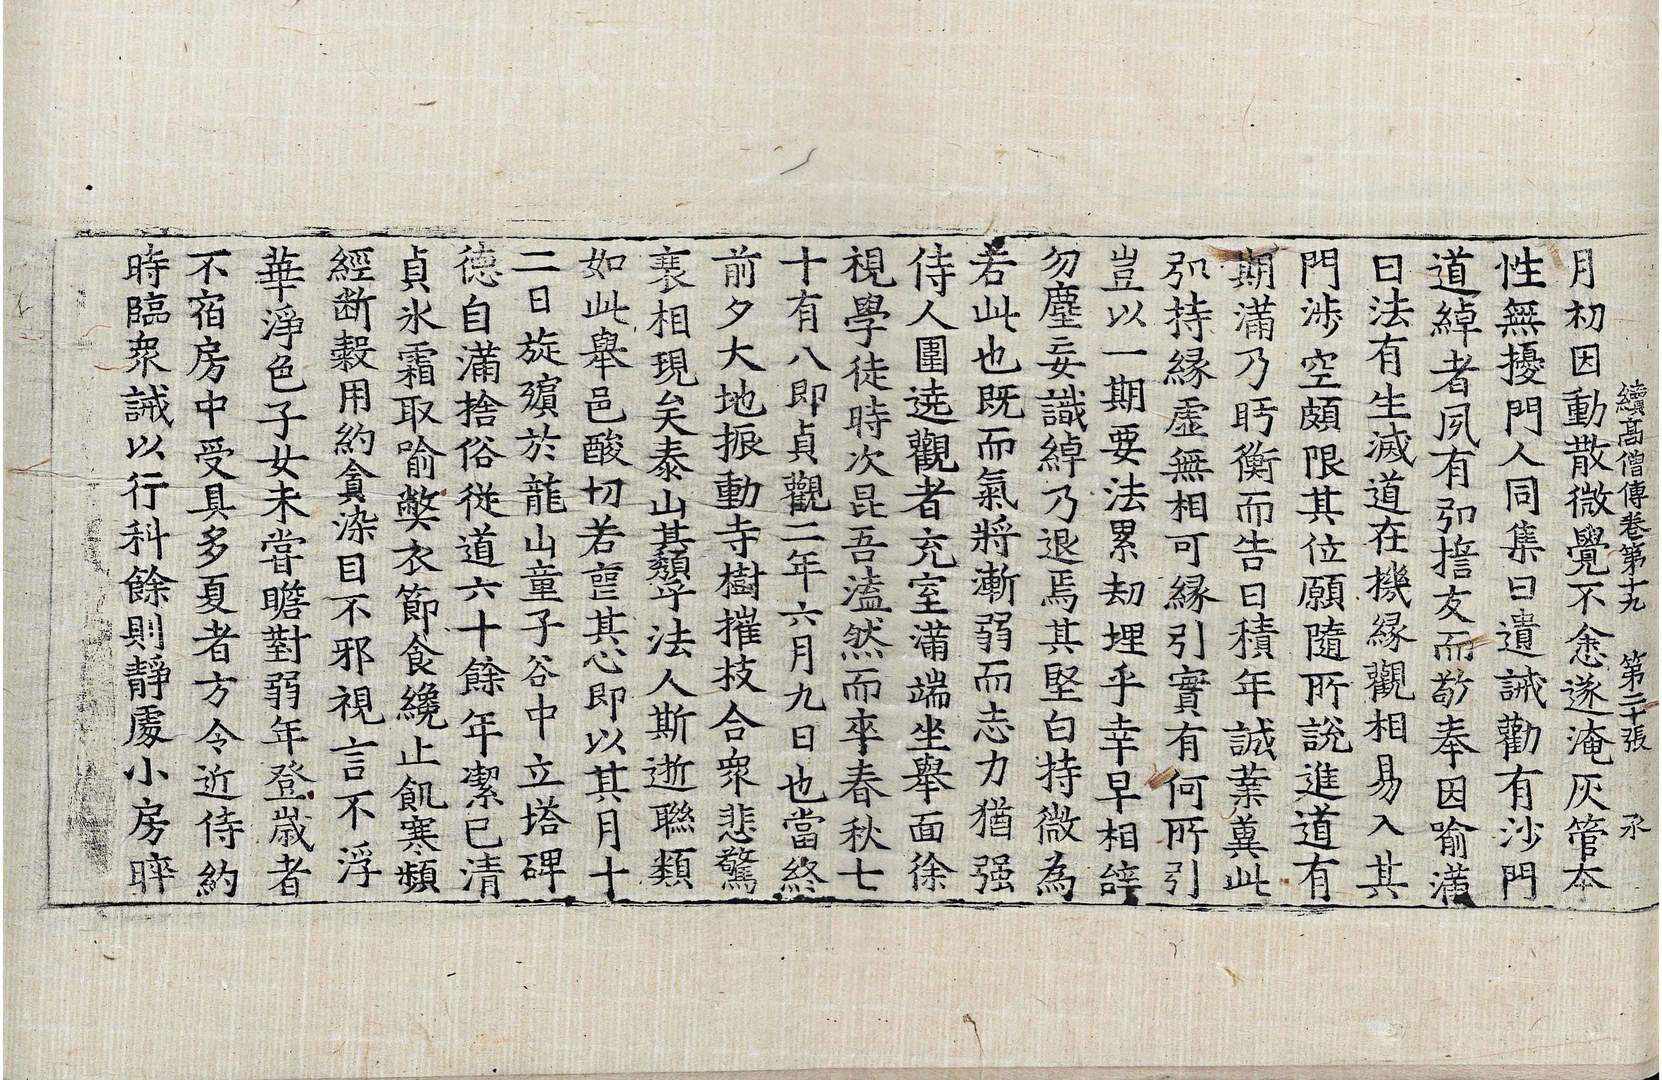 續高僧傳卷第十九　第二十張　承
月初因動散微覺不悆遂淹灰管本
性無擾門人同集曰遺誡勸有沙門
道綽者夙有弘擔友而敬奉因喻滿
曰法有生滅道在機緣觀相易入其
門涉空頗限其位願隨所說進道有
期滿乃眄衡而告曰積年誠業冀此
弘持緣虛無相可緣引實有何所引
豈以一期要法累劫埋乎幸早相辭
勿塵妄識綽乃退焉其堅白持微為
若此也既而氣將漸弱而志力猶强
侍人圍遶觀者充室滿端坐舉面徐
視學徒時次昆吾溘然而卒春秋七
十有八即貞觀二年六月九日也當終
前夕大地振動寺樹摧枝合衆悲驚
衰相現矣泰山其頽乎法人斯逝聯類
如此舉邑酸切若喪其心即以其月十
二日旋殯於龍山童子谷中立塔碑
德自滿捨俗從道六十餘年潔已清
貞氷霜取喻弊衣節食纔止飢寒頻
經断穀用約貪染目不邪視言不浮
華淨色子女未嘗瞻對弱年登歲者
不宿房中受具多夏者方令近侍約
時臨衆誡以行科餘則靜處小房晬